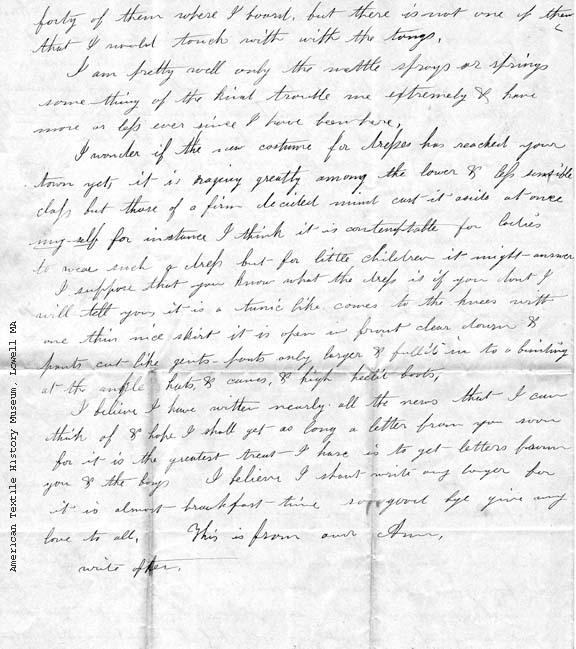 forty of them where I board, but there is not one of them
that I would touch with with the tongs.
I am pretty well only the nettle sprogs or springs
some thing of the kind trouble me extremely & have
more or less ever since I have been here,
I wonder if the new costume for dresses has reached your
town yet, it is raging greatly among the lower & less sensible
class but those of a firm decided mind cast it aside at once
my-self for instance I think it is contemptable for ladies
to wear such a dress but for little children it might answer
I suppose that you know what the dress is if you dont I
will tell you, it is a tunic like comes to the knees with
one thin nice skirt it is open in front clear down &
pants cut like gents-pants only larger & full'd in to a binding
at the ankle hats, & canes, & high heel'd boots,
I believe I have written nearly all the news that I can
think of & hope I shall get as long a letter from you soon
for it is the greatest treat I have is to get letters from
you & the boys I believe I shant write any longer for
it is almost breakfast-time so good bye give my
love to all, This is from our Ann,
write often,
American Textile History Museum, Lowell MA